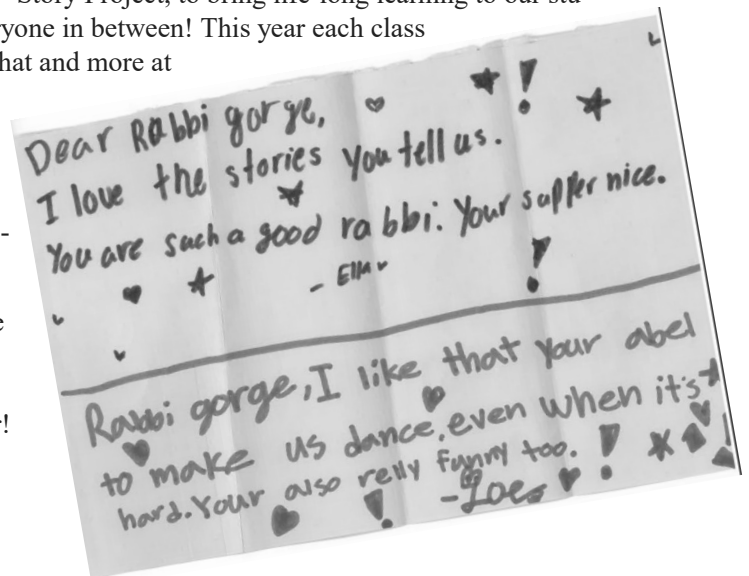 Story Project, to bring life-long learning to our stu
ryone in between! This year each class
hat and more at
-
e
r!
Dear Rabbi gorge,
I love the stories you tell us.
You are such a good rabbi. Your supper nice.
- Ella
Rabbi gorge, I like that your abel
to make us dance, even when it's
hard. Your also relly funny too. !
-Zoe